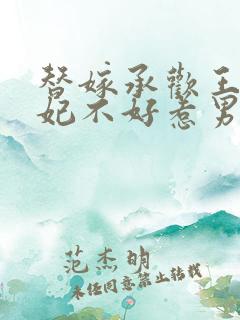 替嫁承欢王
妃不好惹男
范杰明
未经同意禁止转载